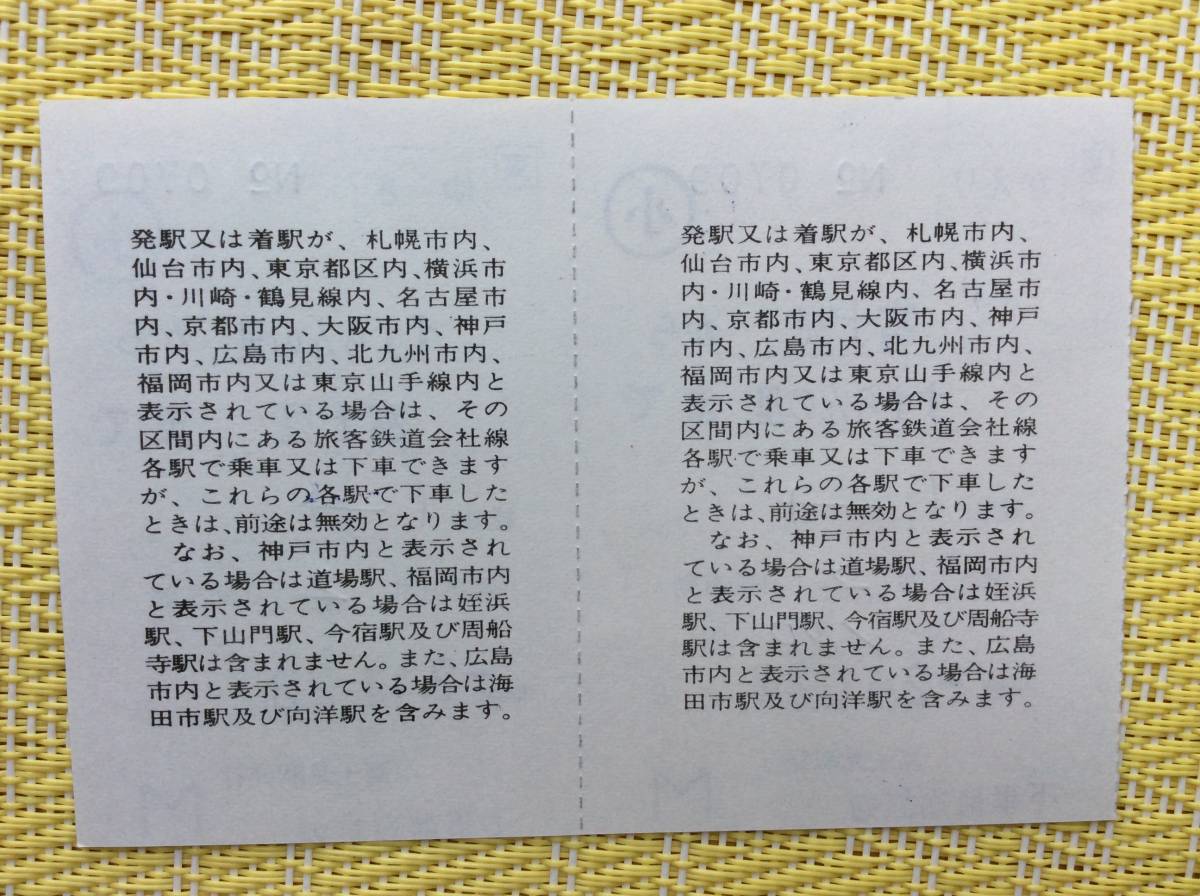 発駅又は着駅が、札幌市内、
仙台市内、東京都区内、横浜市
内・川崎・鶴見線内、名古屋市
内、京都市内、大阪市内、神戸
市内、広島市内、北九州市内、
福岡市内又は東京山手線内と
表示されている場合は、その
区間内にある旅客鉄道会社線
各駅で乗車又は下車できます
が、これらの各駅で下車した
ときは、前途は無効となります。
なお、神戸市内と表示され
ている場合は道場駅、福岡市内
と表示されている場合は姪浜
駅、下山門駅、今宿駅及び周船
寺駅は含まれません。また、広島
市内と表示されている場合は海
田市駅及び向洋駅を含みます。
発駅又は着駅が、札幌市内、
仙台市内、東京都区内、横浜市
内・川崎・鶴見線内、名古屋市
内、京都市内、大阪市内、神戸
市内、広島市内、北九州市内、
福岡市内又は東京山手線内と
表示されている場合は、その
区間内にある旅客鉄道会社線
各駅で乗車又は下車できます
が、これらの各駅で下車した
ときは、前途は無効となります。
なお、神戸市内と表示され
ている場合は道場駅、福岡市内
と表示されている場合は姪浜
駅、下山門駅、今宿駅及び周船寺
駅は含まれません。また、広島
市内と表示されている場合は海
田市駅及び向洋駅を含みます。